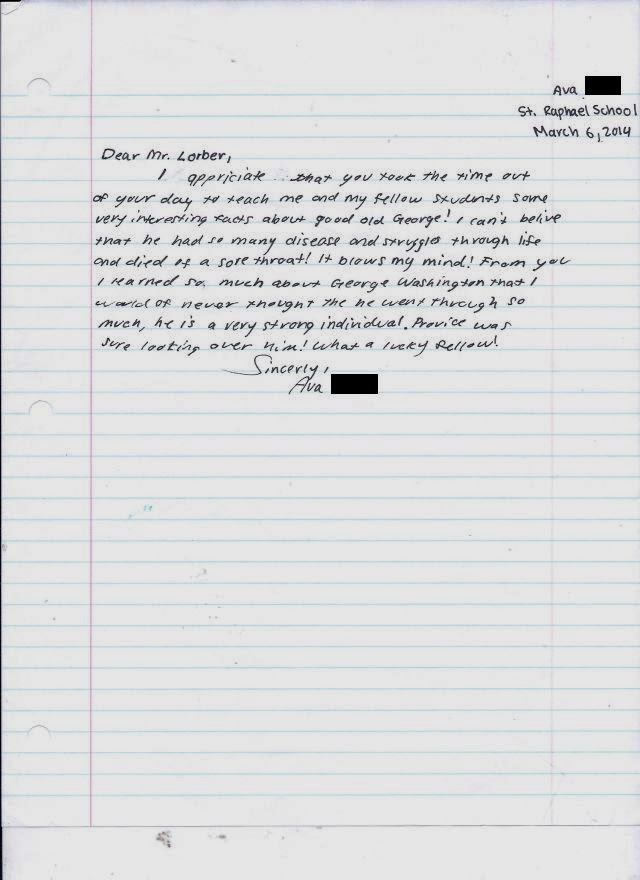 Ava
St. Raphael School
March 6, 2014
Dear Mr. Lorber,
I appriciate that you took the time out
of your day to teach me and my fellow students some
very interesting facts about good old George! I can't belive
that he had so many disease and struggles through life
and died of a sore throat! It blows my mind! From you
I learned so much about George Washington that I
would of never thought the he went through so
much, he is a very strong individual. Provice was
sure looking over him! What a lucky fellow!
Sincerly,
Ava